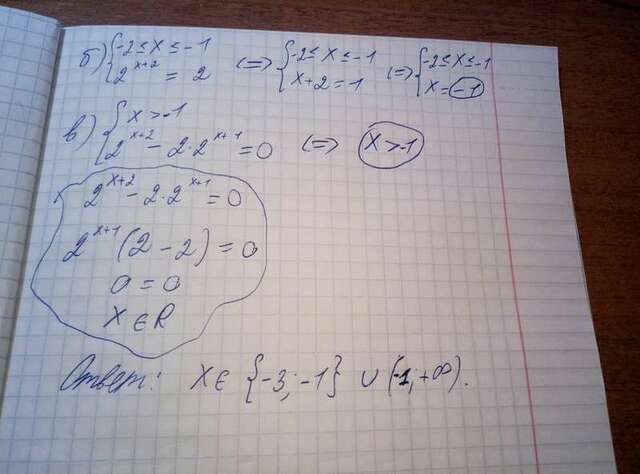 б) { -2 ≤ x ≤ -1 ; 2^{x+2} = 2 <=> { -2 ≤ x ≤ -1 ; x+2 = 1 <=> { -2 ≤ x ≤ -1 ; x = -1
в) { x > -1 ; 2^{x+2} - 2·2^{x+1} = 0 <=> x > -1
2^{x+2} - 2·2^{x+1} = 0
2^{x+1} (2 - 2) = 0
0 = 0
x ∈ R
Ответ: x ∈ {-3; -1} ∪ (-1, +∞).